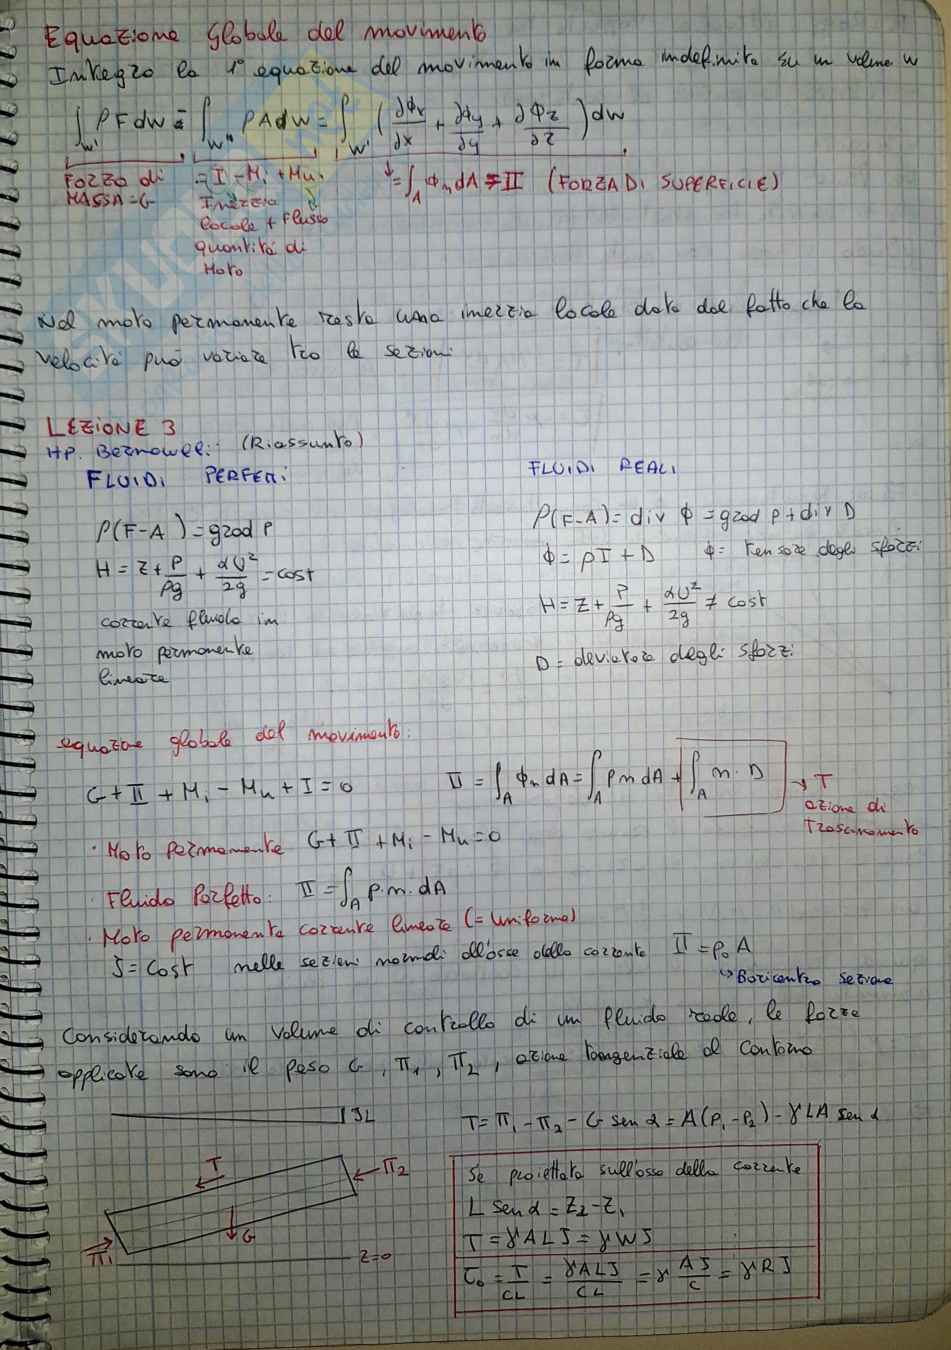 Equazione Globale del movimento
Integro la 1ª equazione del movimento in forma indefinita su un volume W
∫_W ρFdW = ∫_W ρAdW = ∫_W (∂Φx/∂x + ∂Φy/∂y + ∂Φz/∂z) dW
Forza di MASSA = G
= I - Mi + Mu
Inerzia locale + Flusso quantità di Moto
= ∫_A Φn dA = Π (FORZA DI SUPERFICIE)
Nel moto permanente resta una inerzia locale data dal fatto che la
velocità può variare tra le sezioni
LEZIONE 3
HP. Bernoulli: (Riassunto)
FLUIDI PERFETTI
ρ(F-A) = grad P
H = z + P/ρg + αU²/2g = cost
corrente fluida in
moto permanente
lineare
FLUIDI REALI
ρ(F-A) = div Φ = grad p + div D
Φ = pI + D Φ = Tensore degli sforzi
H = z + P/ρg + αU²/2g ≠ cost
D = deviatore degli sforzi
equazione globale del movimento:
G + Π + Mi - Mu + I = 0 Π = ∫_A Φn dA = ∫_A pn dA + ∫_A n · D → T
azione di
Trascinamento
· Moto permanente G + Π + Mi - Mu = 0
· Fluido Perfetto: Π = ∫_A p·n·dA
· Moto permanente corrente lineare (= uniforme)
J = cost nelle sezioni normali all'asse della corrente Π = p₀ A
↳ Baricentro sezione
Considerando un volume di controllo di un fluido reale, le forze
applicate sono il peso G, Π₁, Π₂, azione tangenziale al contorno
JL
T
Π2
G
Π1
z=0
T = Π₁ - Π₂ - G sen α = A(P₁ - P₂) - γLA sen α
Se proiettata sull'asse della corrente
L sen α = Z₂ - Z₁
T = γALJ = γWJ
τ₀ = T/CL = γALJ/CL = γ AJ/C = γRJ